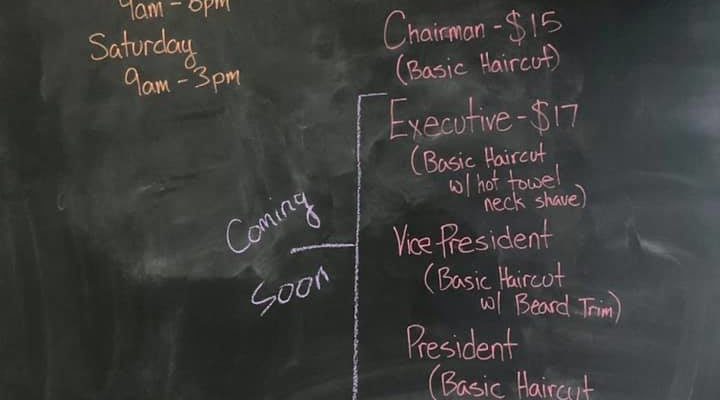 9am - 8pm
Saturday
9am - 3pm
Chairman - $15
(Basic Haircut)
Executive - $17
(Basic Haircut
w/ hot towel
neck shave)
Coming
Soon
Vice President
(Basic Haircut
w/ Beard Trim)
President
(Basic Haircut